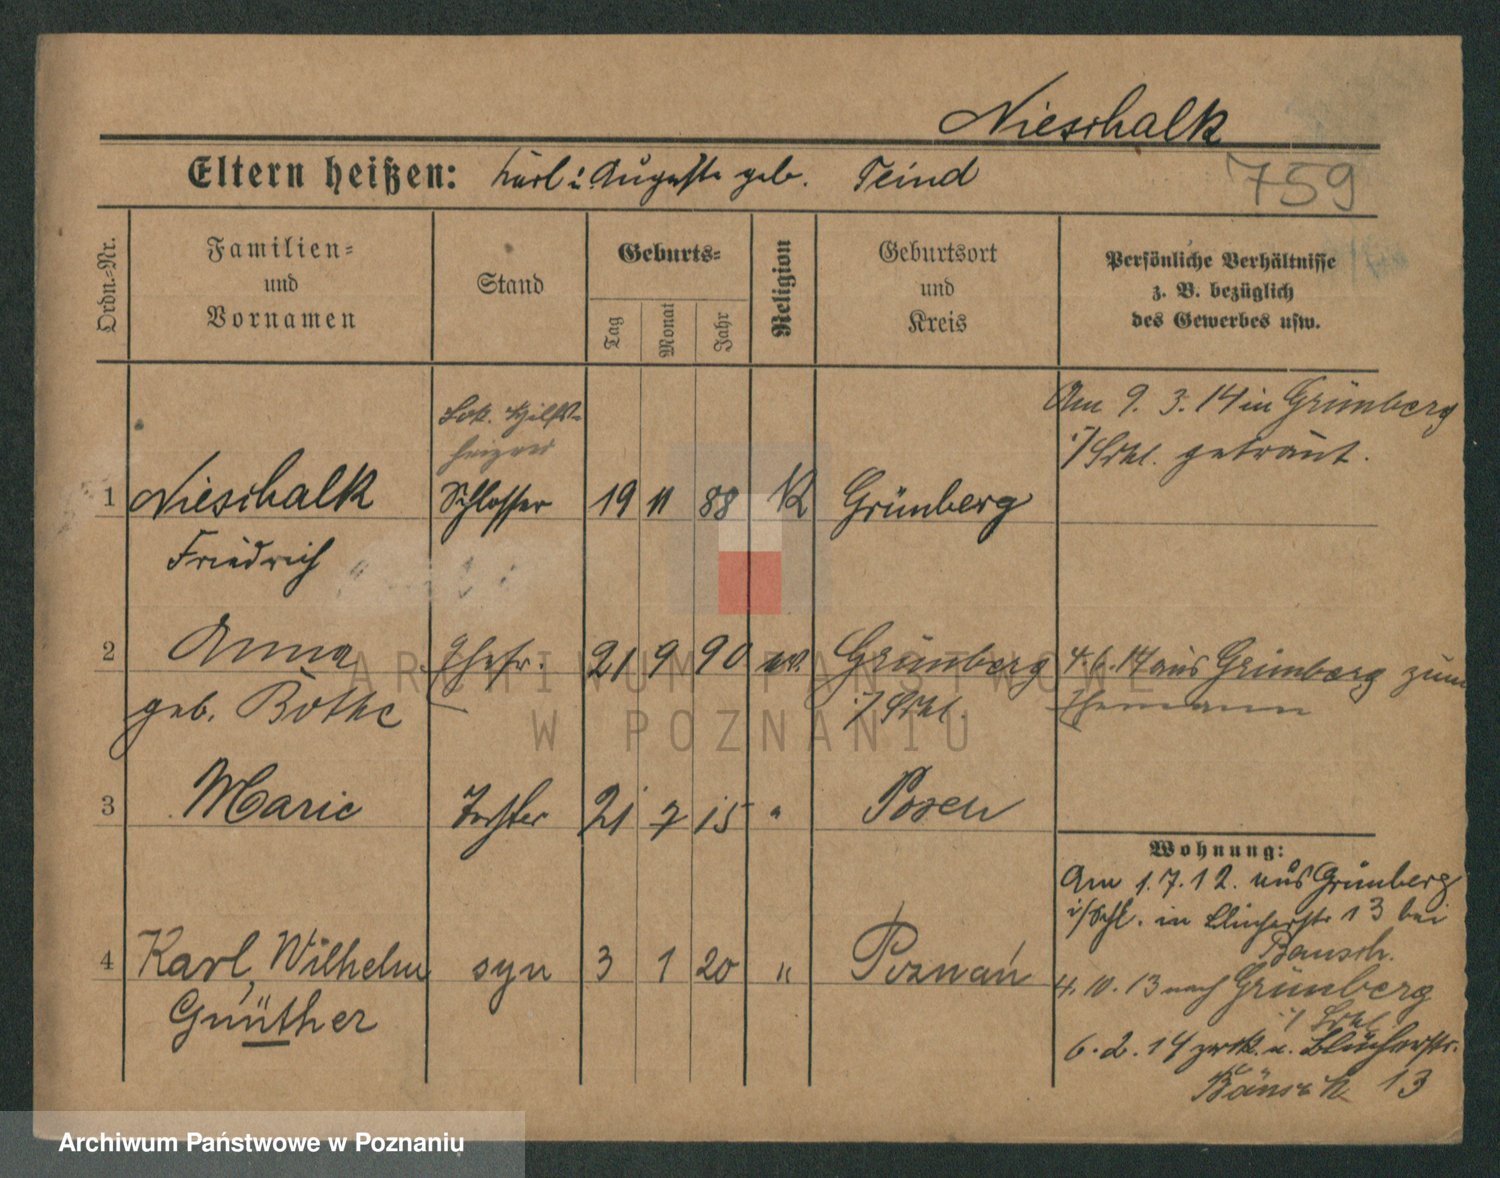 Nieschalk
Eltern heißen: Karl u. Auguste geb. Feind
759
Ordn.-Nr.
Familien-
und
Vornamen
Stand
Geburts-
Tag
Monat
Jahr
Religion
Geburtsort
und
Kreis
Persönliche Verhältnisse
z. B. bezüglich
des Gewerbes usw.
Am 9. 3. 14 in Grünberg
i/Schl. getraut.
Lok. Hilfs-
heizer
1 Nieschalk Schlosser 19 11 88 K Grünberg
Friedrich
2 Anna Ehefr. 21 9 90 ev. Grünberg 4. 6. 14 aus Grünberg zum
geb. Bothe i/Schl. Ehemann
3 Marie Tochter 21 7 15 " Posen
Wohnung:
Am 1. 7. 12. aus Grünberg
i/Schl. in Blücherstr. 13 bei
Bausch.
4 Karl, Wilhelm syn 3 1 20 " Poznań
Günther
4. 10. 13 nach Grünberg
i/Schl.
6. 2. 14 zurück. Blücherstr.
13
ARCHIWUM PAŃSTWOWE
W POZNANIU
Archiwum Państwowe w Poznaniu